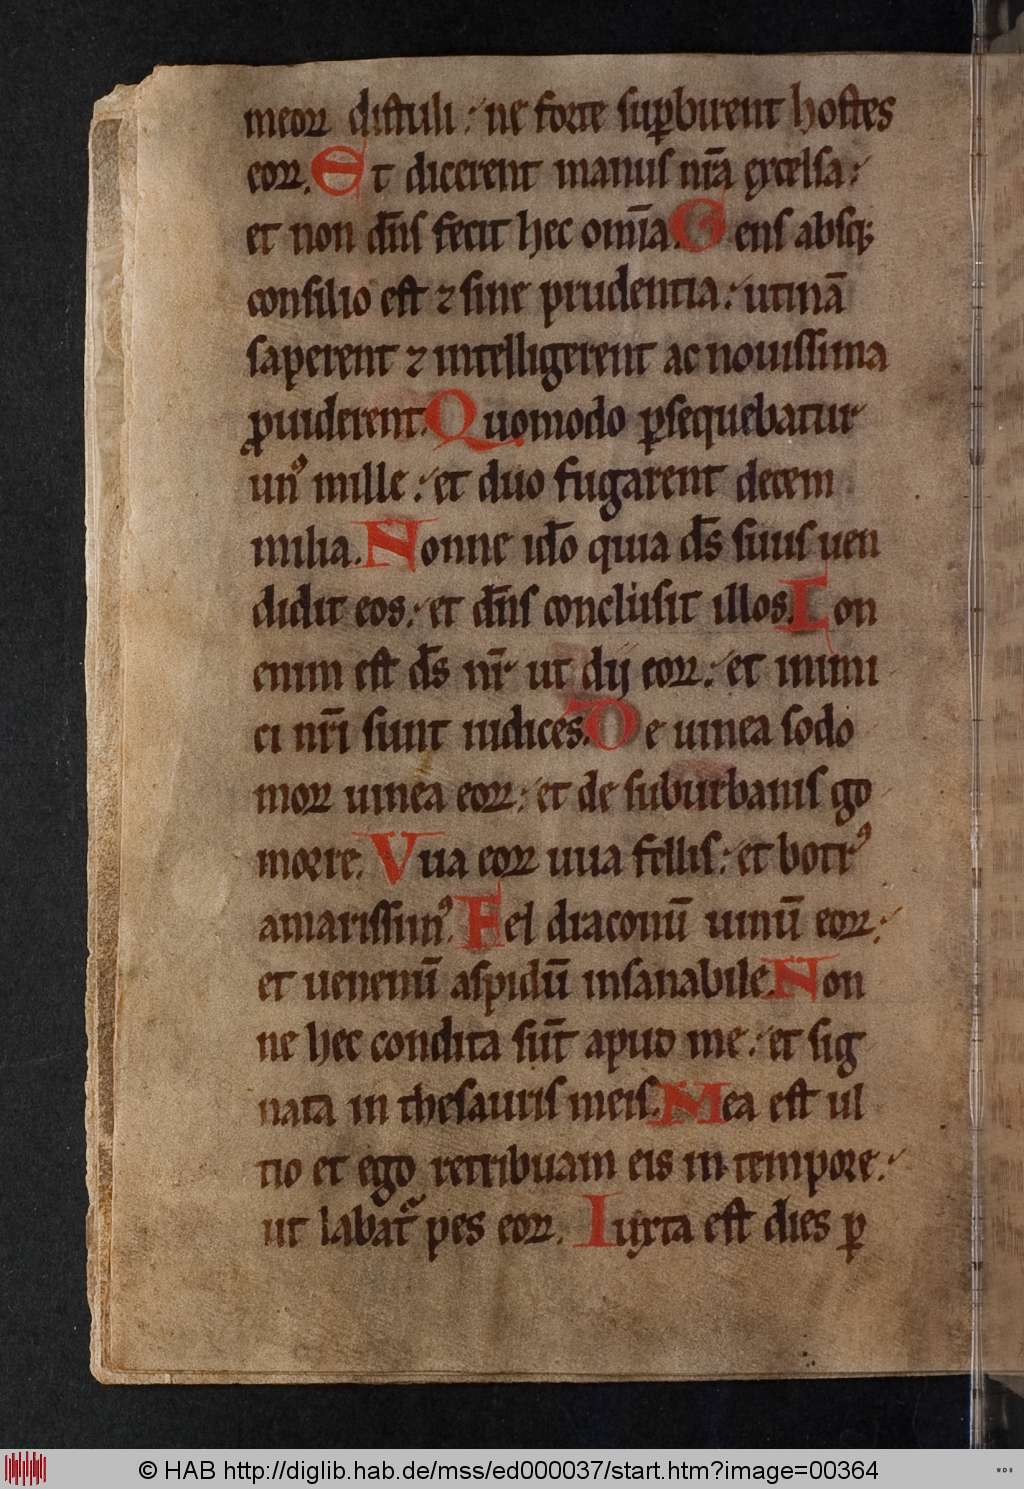 meoꝝ distuli ne forte suꝑbirent hostes
eoꝝ. Et dicerent manus nr̄a excelsa
et non dn̄s fecit hec om̄ia. Gens absq;
consilio est ⁊ sine prudentia utinā
saperent ⁊ intelligerent ac nouissima
ꝓuiderent. Quomodo ꝑsequebatur
unꝰ mille et duo fugarent decem
milia. Nonne id̄o quia ds̄ suus uen
didit eos et dn̄s conclusit illos. Non
enim est ds̄ nr̄ ut dij eoꝝ et inimi
ci nr̄i sunt iudices. De uinea sodo
moꝝ uinea eoꝝ et de suburbanis go
morre. Vua eoꝝ uua fellis et botrꝰ
amarissimꝰ. Fel draconū uinū eoꝝ
et uenenū aspidū insanabile. Non
ne hec condita sūt apud me et sig
nata in thesauris meis. Mea est ul
tio et ego retribuam eis in tempore
ut labatᷓ pes eoꝝ. Iuxta est dies ꝑ
© HAB http://diglib.hab.de/mss/ed000037/start.htm?image=00364